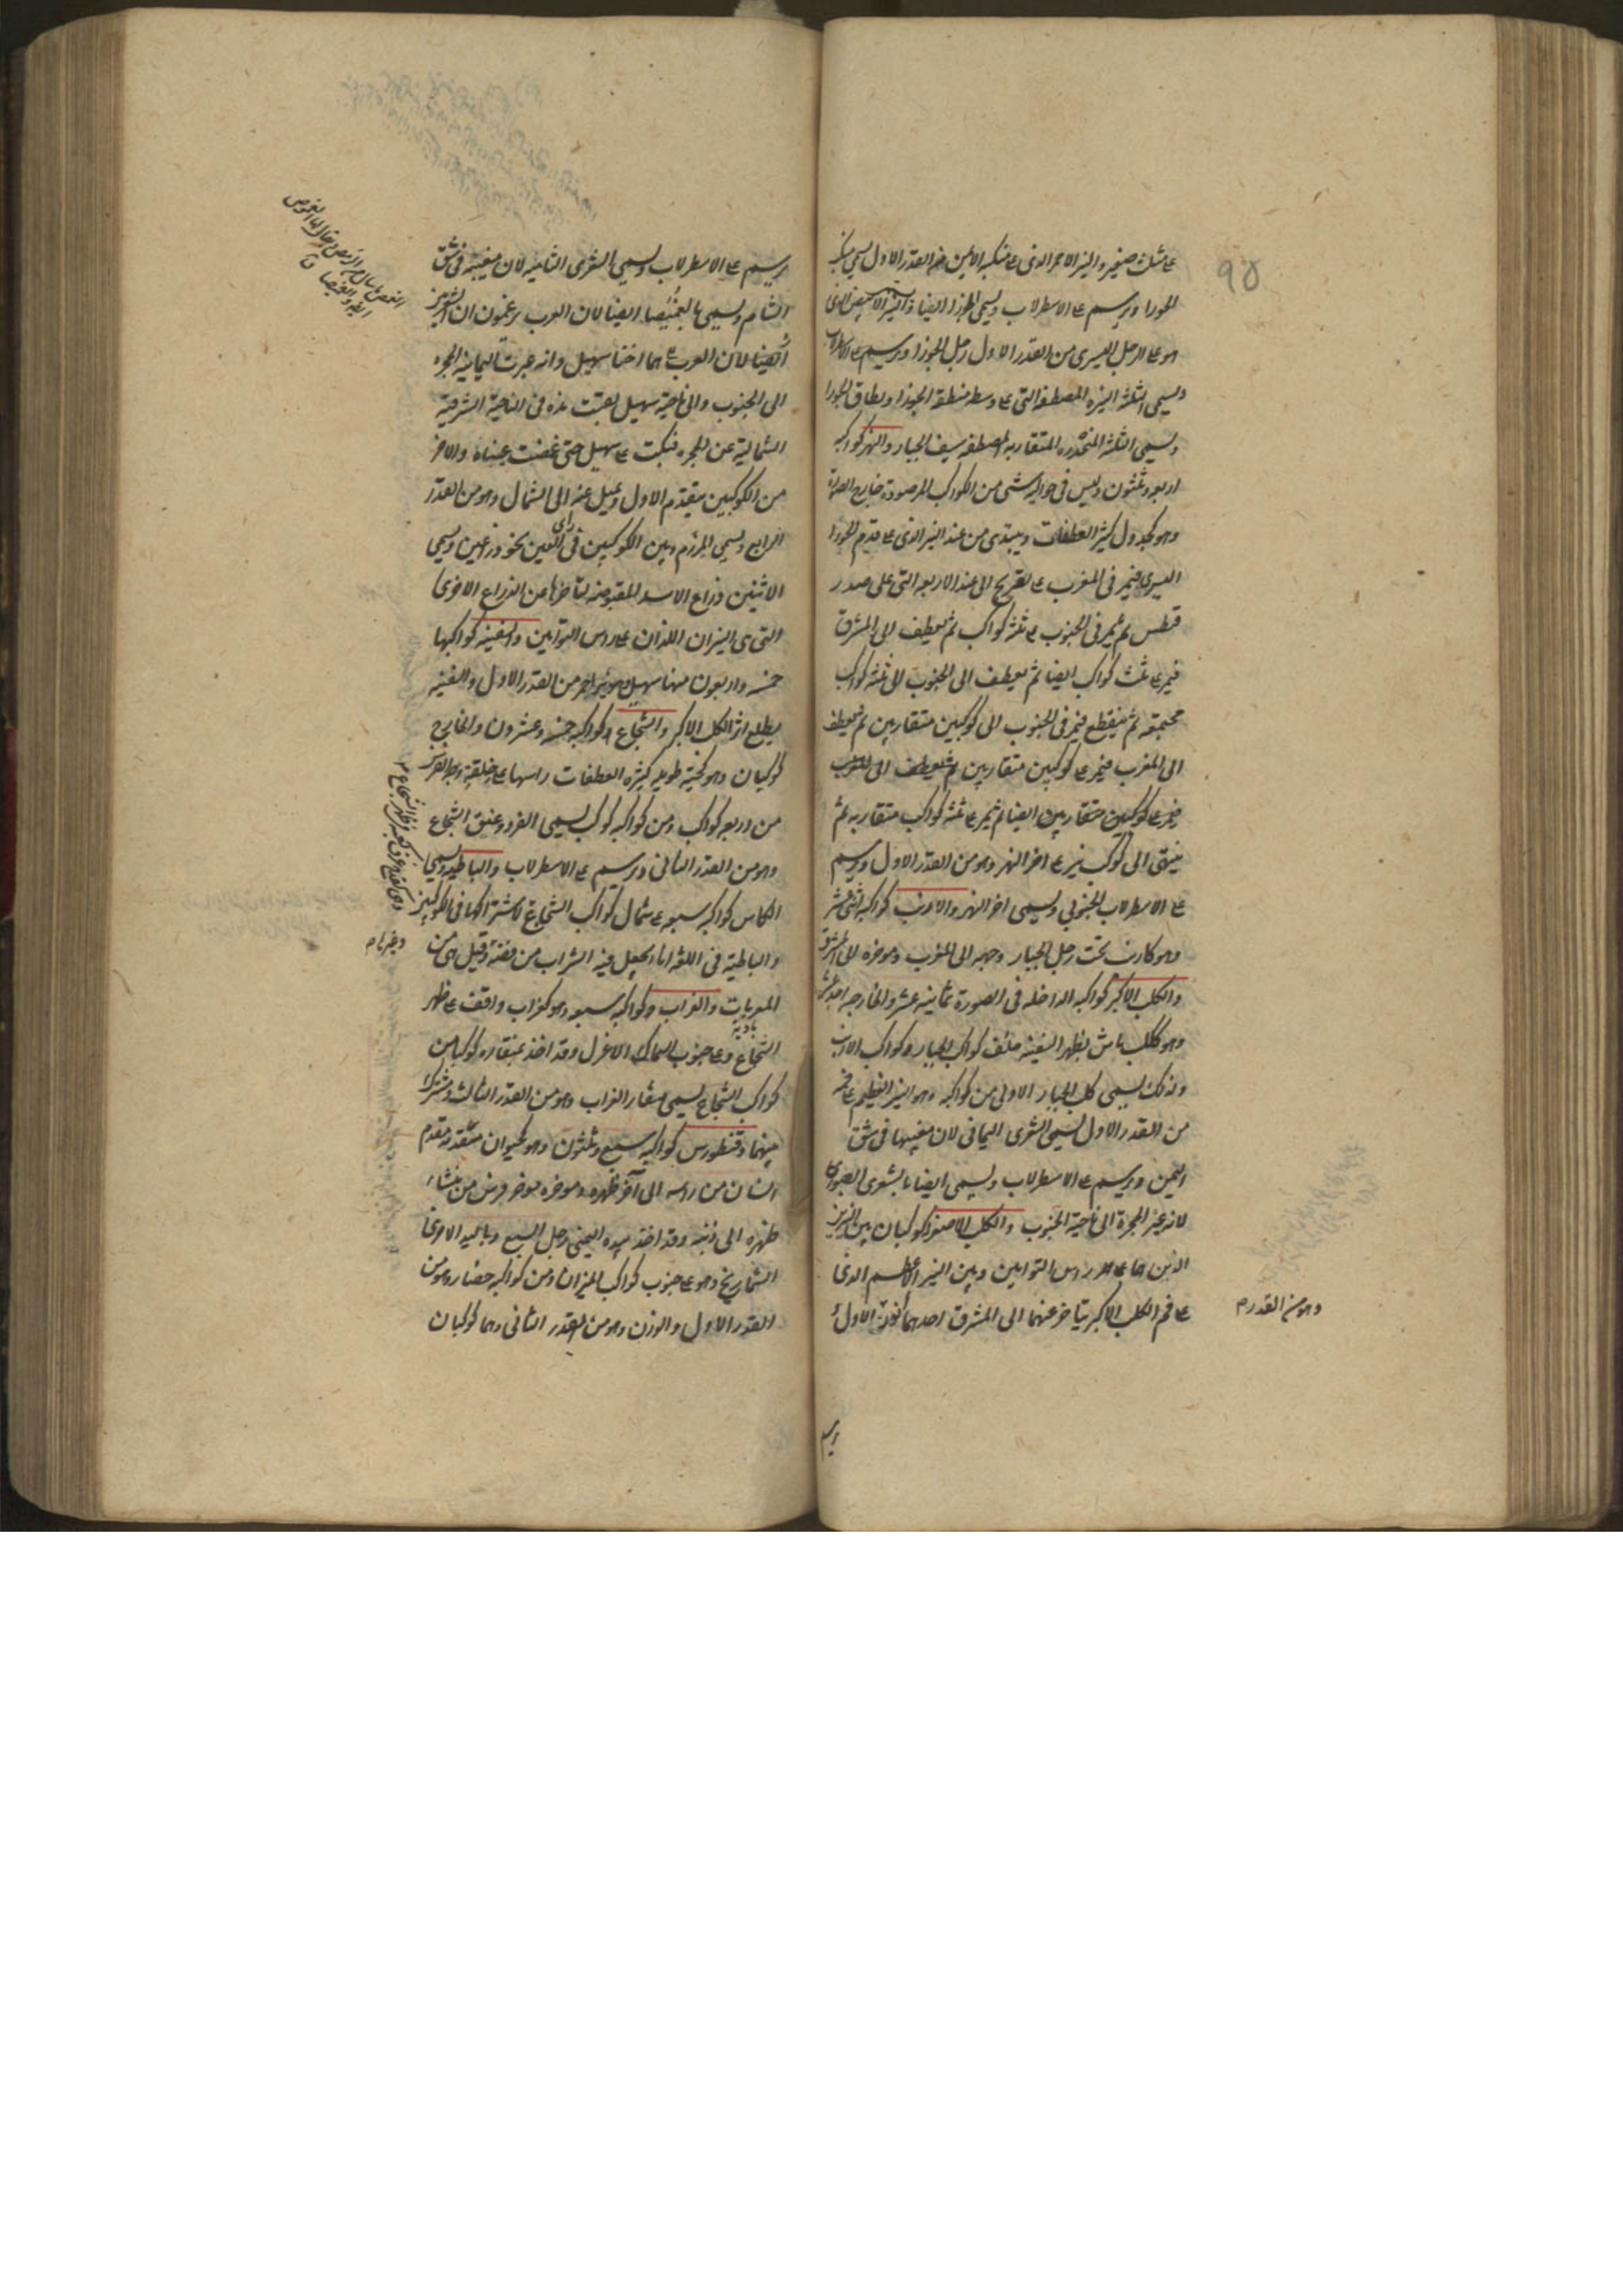 ٩٥
ع مثلث صغير والنير الاحمر الذى ع منكبه الايمن من القدر الاول يسمى منكب
الجوزا ويرسم ع الاسطرلاب ويسمى الجوزا ايضا والنير الابيض الذى
هو ع الرجل اليسرى من القدر الاول رجل الجوزا ويرسم ع الاسطرلاب
ويسمى الثلثة النيره المصطفه التى ع وسطه منطقة الجوزا ونطاق الجوزا
ويسمى الثلثة المنحدره المتقاربه المصطفه سيف الجبار والنهر كواكبه
اربعه وثلثون وليس فى حواليه شى من الكواكب المرصودة خارج الصورة
وهو كجدول كثير العطفات ويبتدى من عند النير الذى ع قدم الجوزا
اليسرى فيمر فى المغرب ع تعريج الى عند الاربعه التى على صدر
قيطس ثم يمر فى الجنوب ع ثلثه كواكب ثم يعطف الى المشرق
فيمر ع ثلث كواكب ايضا ثم يعطف الى الجنوب الى ثلثه كواكب
مجتمعه ثم ينقطع فيمر فى الجنوب الى كوكبين متقاربين ثم يعطف
الى المغرب فيمر ع كوكبين متقاربين ثم يعطف الى المغرب
فيمر ع كوكبين متقاربين ايضا ثم يمر ع ثلثه كواكب متقاربه ثم
ينتهى الى كوكب نير ع اخر النهر وهو من القدر الاول ويرسم
ع الاسطرلاب الجنوبي ويسمى اخر النهر والارنب كواكبه اثنى عشر
وهو كارنب تحت رجل الجبار وجهه الى المغرب وموخره الى المشرق
والكلب الاكبر كواكبه الداخله فى الصورة ثمانيه عشر والخارجه احد عشر
وهو ككلب ماش بظهر السفينه خلف كواكب الجبار وكواكب الارنب
ولذلك يسمى كلب الجبار الاولى من كواكبه وهو النير العظيم ع فمه
من القدر الاول يسمى الشعرى اليمانى لان مغيبها فى شق
اليمن ويرسم ع الاسطرلاب ويسمى ايضا بالشعرى العبور
لانه عبر المجرة الى ناحية الجنوب والكلب الاصغر كوكبان بين النيرين
الذين هما ع راس التوامين وبين النير الاعظم الذى
ع فم الكلب الاكبر يتاخر عنهما الى المشرق احدهما نور الاول
وهو من القدر م
يرسم ع الاسطرلاب ويسمى الشعرى الشاميه لان مغيبه فى شق
الشام ويسمى بالغميصا ايضا لان العرب يزعمون ان الشعريين
ايضا لان العرب هما اختا سهيل وانه عبرت اليمانية المجره
الى الجنوب والى ناحية سهيل بقيت هذه فى الناحية الشرقية
الشمالية عن المجره فبكت ع سهيل حتى غمضت عيناه والاخر
من الكوكبين يتقدم الاول ويميل عنه الى الشمال وهو من القدر
الرابع ويسمى المرزم وبين الكوكبين فى راى العين نحو ذراعين ويسمى
الاثنين ذراع الاسد المقبوضه لتاخرها عن الذراع الاخرى
التى هى النيران اللذان ع راس التوامين والسفينه كواكبها
خمسه واربعون منها سهيل وهو نير احمر من القدر الاول والسفينه
يطلع اثر الكلب الاكبر والشجاع كواكبه خمسه وعشرون والخارج
كوكبان وهو كحية طويله كثيره العطفات راسها ع
من اربعه كواكب ومن كواكبه كوكب يسمى الفرد وعنق الشجاع
وهو من القدر الثانى ويرسم ع الاسطرلاب والباطيه ويسمى
الكاس كواكبه سبعه ع شمال كواكب الشجاع
والباطية فى اللغة اناء يجعل فيه الشراب من فضة وقيل هى من
المعربات والغراب كواكبه سبعه وهو كغراب واقف ع ظهر
الشجاع وع جنوب السماك الاعزل وقد اخذ بمنقاره كوكبا من
كواكب الشجاع يسمى منقار الغراب وهو من القدر الثالث ومشترك
بينهما وقنطورس كواكبه سبع وثلثون وهو كحيوان مقدمه مقدم
انسان من راسه الى آخر ظهره وموخره موخر فرس من منشاء
ظهره الى ذنبه وقد اخذ بيده اليمنى رجل السبع وباليد الاخرى
الشماريخ وهو ع جنوب كواكب الميزان ومن كواكبه حضار وهو من
القدر الاول والوزن وهو من القدر الثانى وهما كوكبان